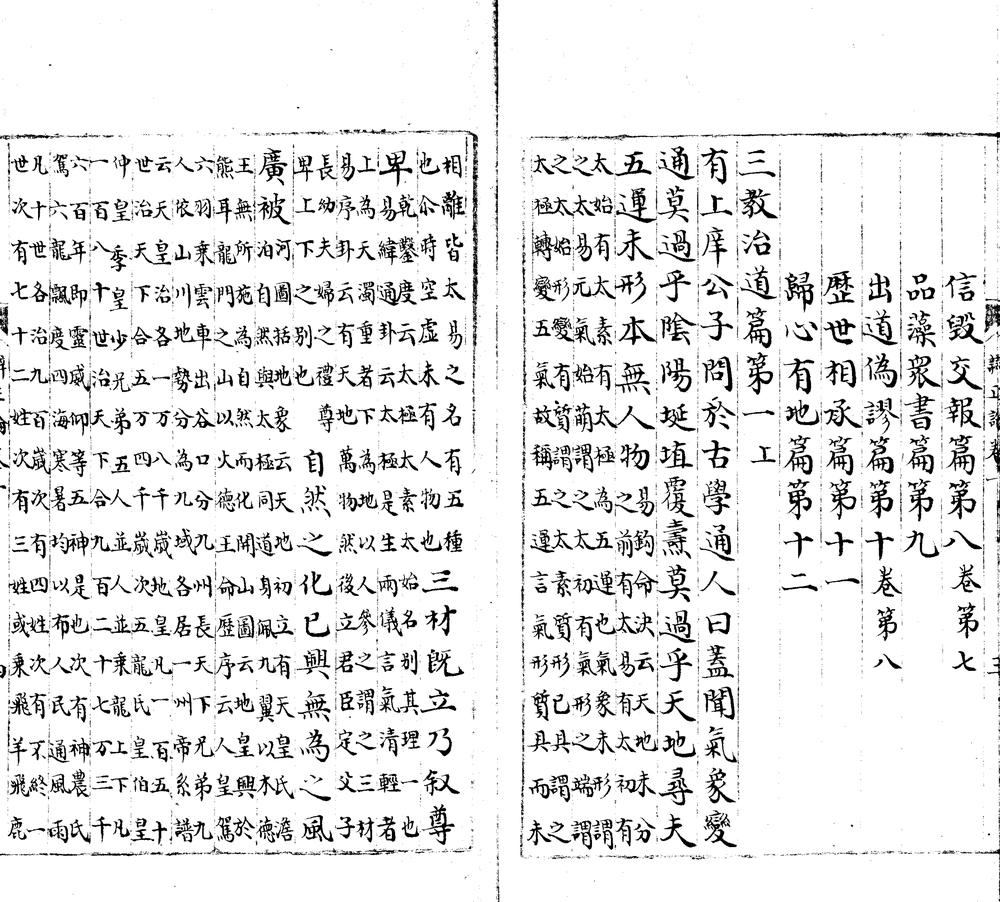 信毀交報篇第八 卷第七
品藻衆書篇第九
出道偽謬篇第十 卷第八
歷世相承篇第十一
歸心有地篇第十二
三教治道篇第一 上
有上庠公子問於古學通人曰蓋聞氣象變
通莫過乎陰陽埏埴覆燾莫過乎天地尋夫
五運未形本無人物 易鈎命決云天地未分
之前有太易有太初有
太始有太素有太極為五運也氣象未形謂
之太易元氣始萌謂之太初氣形之端謂
之太始形變有質謂之太素質形已具謂之
太極轉變五氣故稱五運言氣形質具而未
相離皆太易之名有五種
也尒時空虛未有人物也 三材既立乃叙尊
卑 乾鑿度云太極太素太始名別其理一也
易緯通卦云太極是生兩儀言氣清輕者
上為天濁重者下為地以人參謂之三材
易序卦云有天地萬物然後立君臣定父子
長幼夫婦之禮尊
卑上下別也 自然之化已興無為之風
廣被 河圖括地象云天地初立有天皇氏澹
泊自然與太極同道身佩九翼以木德
王無所施為自然而化開山圖云地皇興於
熊耳龍門之山以火德王命歷序云人皇駕
六羽乘雲車出谷口分九州長天下兄弟九
人依山川地勢分為九域各居一州帝系譜
云天皇治一万八千歲地皇凡一百五十
世治天下合五万四千歲次五龍氏皇伯皇
仲皇季皇少兄弟五人並乘龍上下凡
一百八十世治天下合九百二十七万三千
六百年即靈威仰等五神是也次有神農氏
駕六龍飄度四海寒暑均以布人民通風雨
凡十世各治九百歲次有四姓次有不終一
世次有七十二姓次有三姓或乘飛羊飛鹿